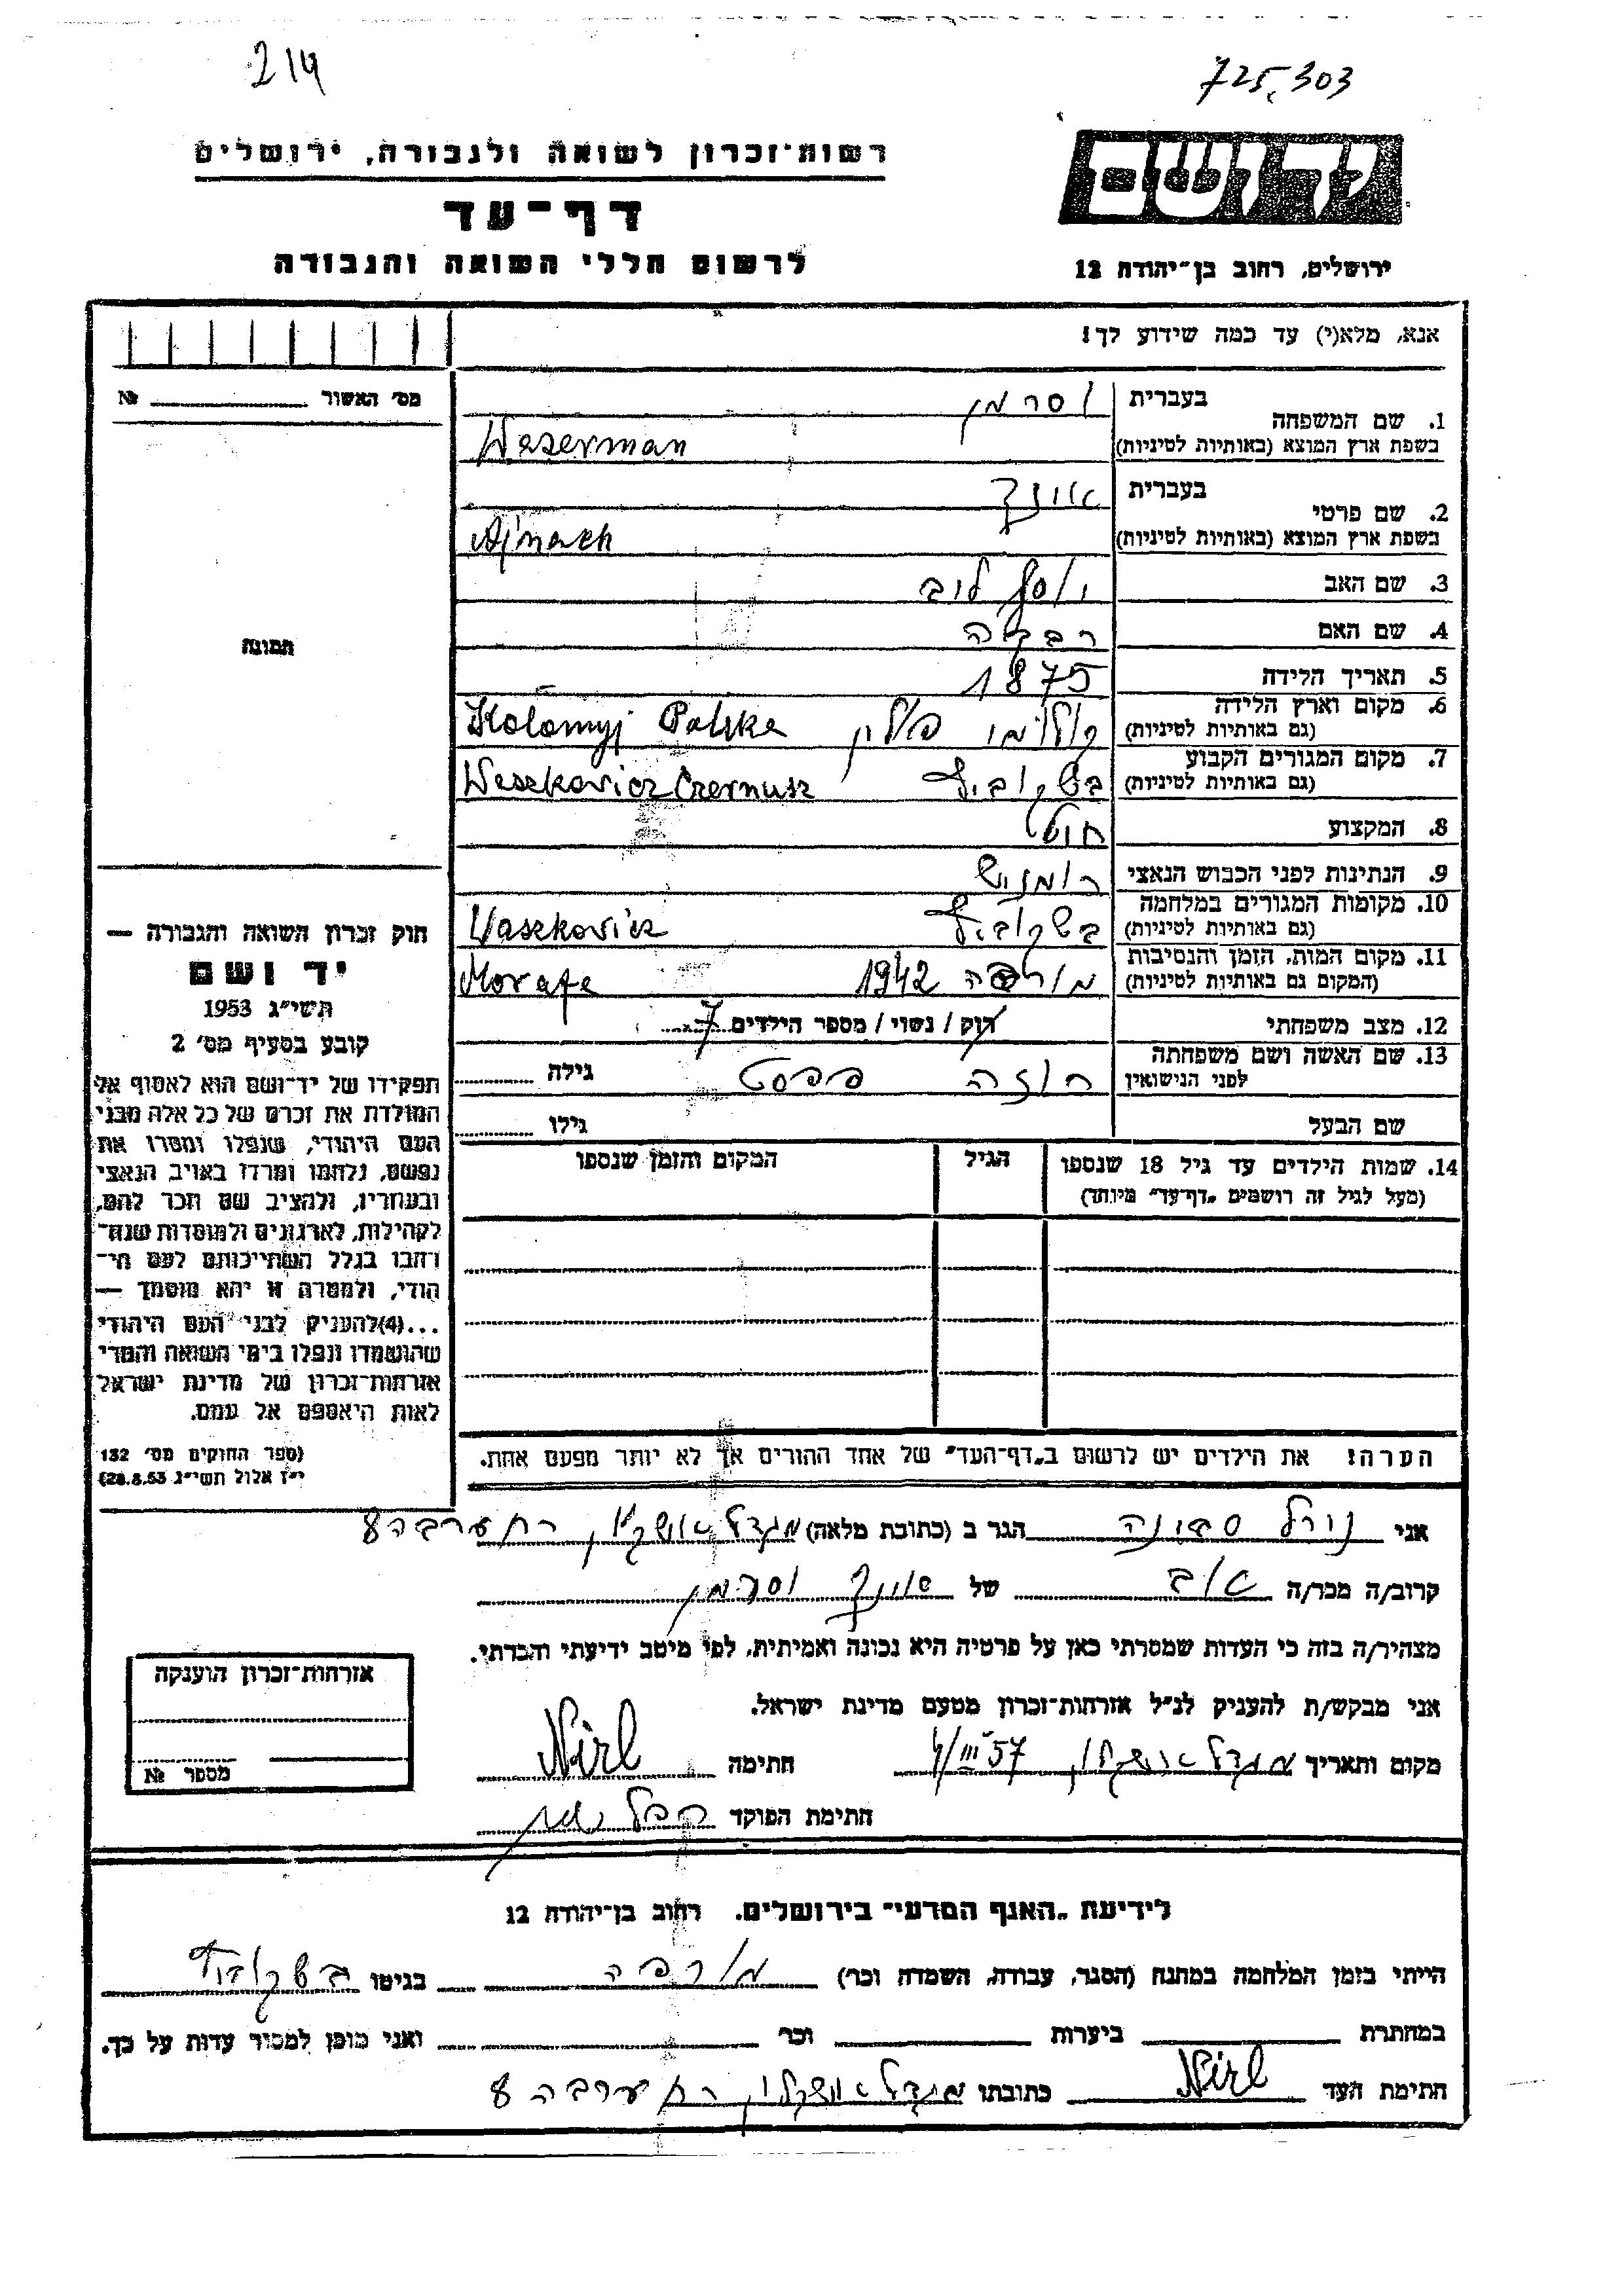 214
725,303
רשות־זכרון לשואה ולגבורה, ירושלים
דף־עד
לרשום חללי השואה והגבורה
יד ושם
ירושלים, רחוב בן־יהודה 12
אנא, מלא(י) עד כמה שידוע לך!
מס' האשור №
תמונה
1. שם המשפחה
בעברית וסרמן
בשפת ארץ המוצא (באותיות לטיניות) Weserman
2. שם פרטי
בעברית
בשפת ארץ המוצא (באותיות לטיניות) Ajnach
3. שם האב יוסף ליב
4. שם האם רבקה
5. תאריך הלידה 1875
6. מקום וארץ הלידה (גם באותיות לטיניות) קולומי פולין Kolomyj Polska
7. מקום המגורים הקבוע (גם באותיות לטיניות) בשקוביץ Weszkovicz Czernusz
8. המקצוע
9. הנתינות לפני הכבוש הנאצי רומניש
10. מקומות המגורים במלחמה (גם באותיות לטיניות) בשקוביץ Waszkovicz
11. מקום המות, הזמן והנסיבות (המקום גם באותיות לטיניות) מורפה 1942 Morafa
12. מצב משפחתי רוק / נשוי / מספר הילדים 7
13. שם האשה ושם משפחתה לפני הנישואין רוזה גילה
שם הבעל גילו
14. שמות הילדים עד גיל 18 שנספו (מעל לגיל זה רושמים "דף־עד" מיוחד)
הגיל
המקום והזמן שנספו
הערה! את הילדים יש לרשום ב"דף־העד" של אחד ההורים אך לא יותר מפעם אחת.
חוק זכרון השואה והגבורה —
יד ושם
תשי"ג 1953
קובע בסעיף מס' 2
תפקידו של יד־ושם הוא לאסוף אל
המולדת את זכרם של כל אלה מבני
העם היהודי, שנפלו ומסרו את
נפשם, נלחמו ומרדו באויב הנאצי
ובעוזריו, ולהציב שם וזכר להם,
לקהילות, לארגונים ולמוסדות שנח־
רבו בגלל השתייכותם לעם הי־
הודי, ולמטרה זו יהא מוסמך —
...(4) להעניק לבני העם היהודי
שהושמדו ונפלו בימי השואה והמרי
אזרחות־זכרון של מדינת ישראל
לאות היאספם אל עמם.
(ספר החוקים מס' 132
י"ז אלול תשי"ג 28.8.53)
אני נירל סבינה הגר ב (כתובת מלאה) מגדל אשקלון רח ערבה 8
קרוב/ה מכר/ה אב של וסרמן
מצהיר/ה בזה כי העדות שמסרתי כאן על פרטיה היא נכונה ואמיתית, לפי מיטב ידיעתי והכרתי.
אני מבקש/ת להעניק לנ"ל אזרחות־זכרון מטעם מדינת ישראל.
מקום ותאריך מגדל אשקלון 4/III 57 חתימה Nirl
חתימת הפוקד
אזרחות־זכרון הוענקה
מספר №
לידיעת "האגף המדעי" בירושלים, רחוב בן־יהודה 12
הייתי בזמן המלחמה במחנה (הסגר, עבודה, השמדה וכו') מורפה בגיטו
במחתרת ביערות וכו' ואני מוכן למסור עדות על כך.
חתימת העד Nirl כתובתו מגדל אשקלון רח ערבה 8